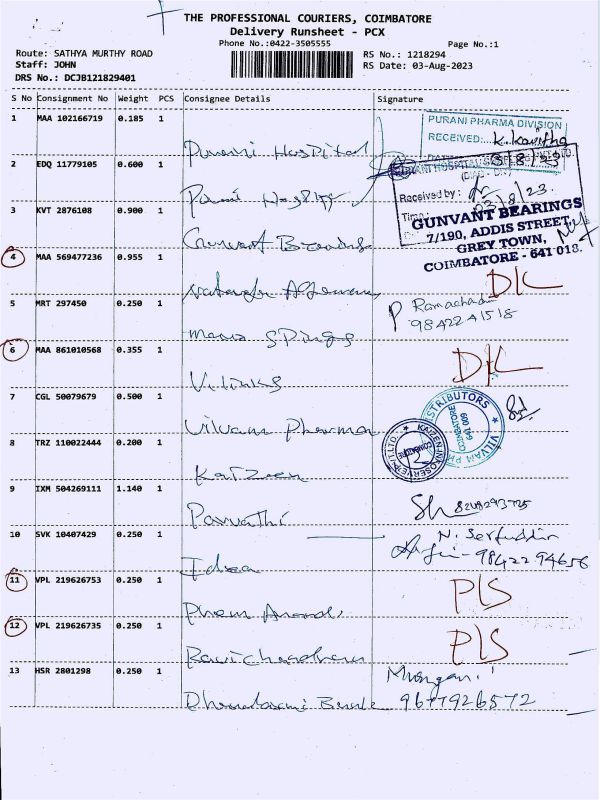 THE PROFESSIONAL COURIERS, COIMBATORE
Delivery Runsheet - PCX
Phone No.:0422-3505555
Page No.:1
Route: SATHYA MURTHY ROAD
RS No.: 1218294
Staff: JOHN
RS Date: 03-Aug-2023
DRS No.: DCJB121829401
S No Consignment No Weight PCS Consignee Details Signature
1 MAA 102166719 0.185 1
PURANI PHARMA DIVISION
RECEIVED:... K. Kavitha
Purani Hospital
2 EDQ 11779105 0.600 1
Received by :
03/8/23
Purani Hospital
3 KVT 2876108 0.900 1
GUNVANT BEARINGS
7/190, ADDIS STREET,
GREY TOWN,
COIMBATORE - 641 018.
Gunvant Bearings
4 MAA 569477236 0.955 1
D/L
5 MRT 297450 0.250 1
P Ramachadn
9842241518
Springs
6 MAA 861010568 0.355 1
D/L
Vilinks
7 CGL 50079679 0.500 1
DISTRIBUTORS
VILVAM PH
COIMBATORE
641 009
Vilvam Pharma
8 TRZ 110022444 0.200 1
COIMBATORE
Kaizeen
9 IXM 504269111 1.140 1
Parvathi
10 SVK 10407429 0.250 1
N. Serfuddin
98422 94656
Idea
11 VPL 219626753 0.250 1
P/S
Prem Anand
12 VPL 219626735 0.250 1
P/S
Ravichandran
13 HSR 2801298 0.250 1
9677926572